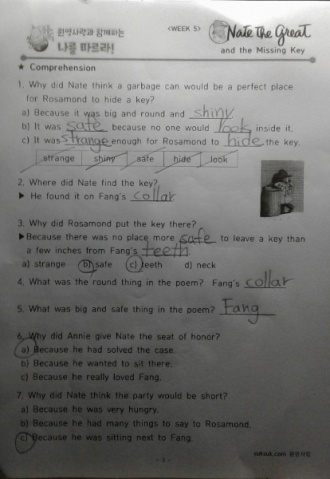 원영사랑과 함께하는
나를 따르라!
<WEEK 5>
Nate the Great
and the Missing Key
★ Comprehension
1. Why did Nate think a garbage can would be a perfect place
for Rosamond to hide a key?
a) Because it was big and round and shiny
b) It was safe because no one would look inside it.
c) It was strange enough for Rosamond to hide the key.
strange shiny safe hide look
2. Where did Nate find the key?
▶ He found it on Fang's collar
3. Why did Rosamond put the key there?
▶Because there was no place more safe to leave a key than
a few inches from Fang's teeth
a) strange b) safe c) teeth d) neck
4. What was the round thing in the poem? Fang's collar
5. What was big and safe thing in the poem? Fang
6. Why did Annie give Nate the seat of honor?
a) Because he had solved the case.
b) Because he wanted to sit there.
c) Because he really loved Fang.
7. Why did Nate think the party would be short?
a) Because he was very hungry.
b) Because he had many things to say to Rosamond.
c) Because he was sitting next to Fang.